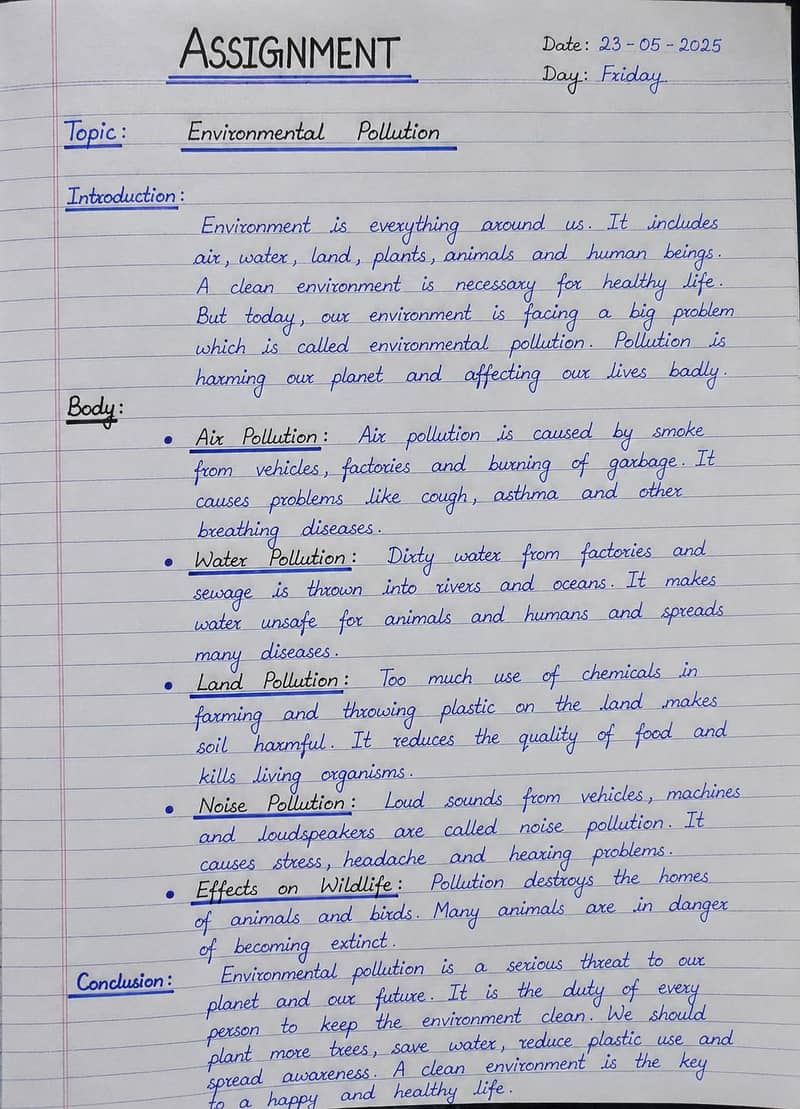 ASSIGNMENT
Date: 23-05-2025
Day: Friday
Topic: Environmental Pollution
Introduction:
Environment is everything around us. It includes
air, water, land, plants, animals and human beings.
A clean environment is necessary for healthy life.
But today, our environment is facing a big problem
which is called environmental pollution. Pollution is
harming our planet and affecting our lives badly.
Body:
• Air Pollution: Air pollution is caused by smoke
from vehicles, factories and burning of garbage. It
causes problems like cough, asthma and other
breathing diseases.
• Water Pollution: Dirty water from factories and
sewage is thrown into rivers and oceans. It makes
water unsafe for animals and humans and spreads
many diseases.
• Land Pollution: Too much use of chemicals in
farming and throwing plastic on the land makes
soil harmful. It reduces the quality of food and
kills living organisms.
• Noise Pollution: Loud sounds from vehicles, machines
and loudspeakers are called noise pollution. It
causes stress, headache and hearing problems.
• Effects on Wildlife: Pollution destroys the homes
of animals and birds. Many animals are in danger
of becoming extinct.
Conclusion: Environmental pollution is a serious threat to our
planet and our future. It is the duty of every
person to keep the environment clean. We should
plant more trees, save water, reduce plastic use and
spread awareness. A clean environment is the key
to a happy and healthy life.